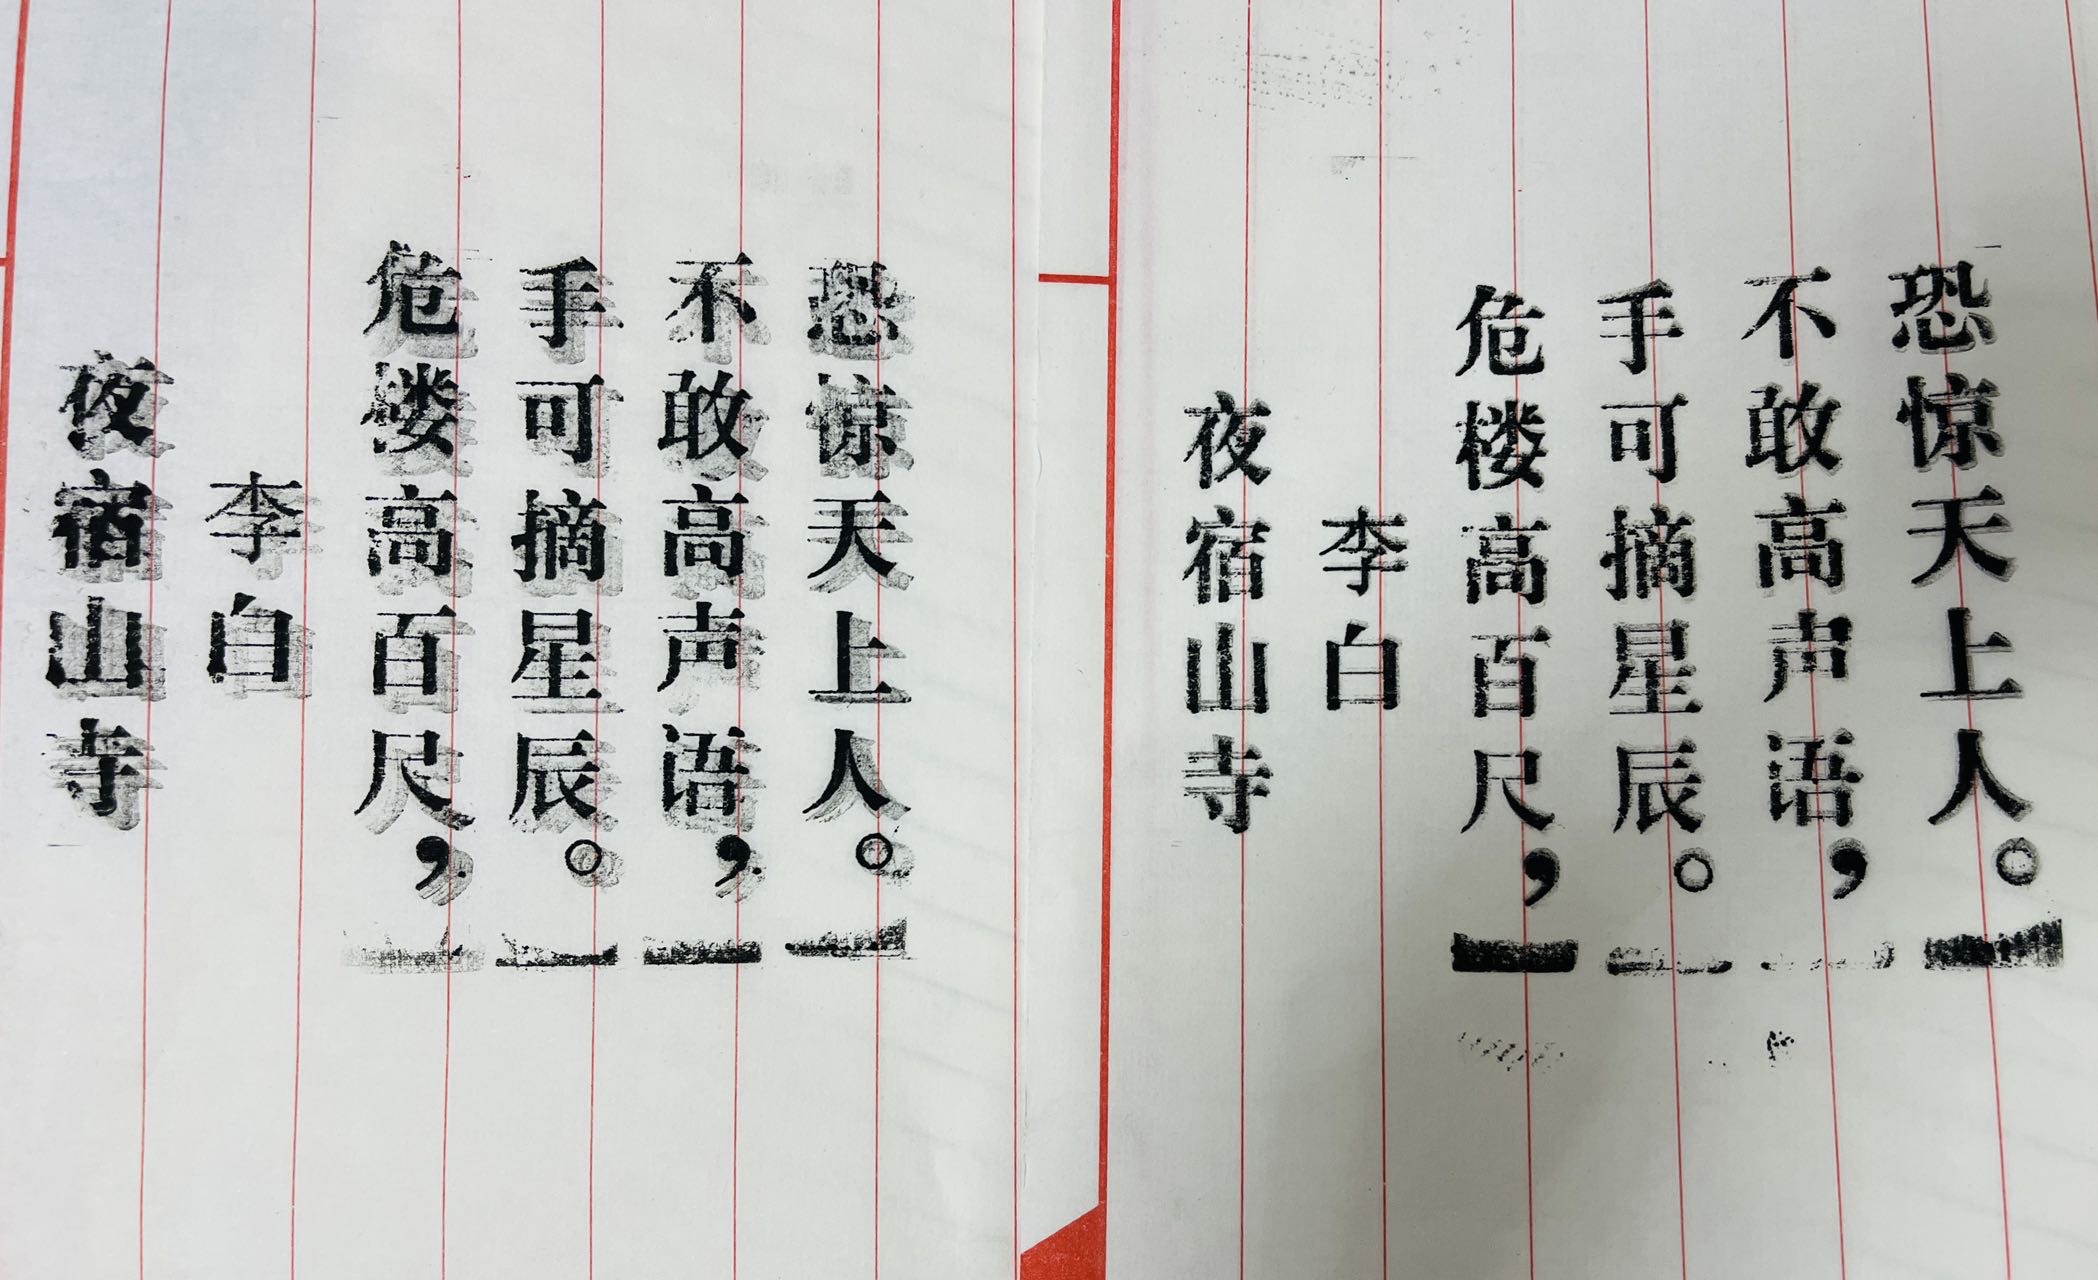 夜宿山寺
李白
危楼高百尺，
手可摘星辰。
不敢高声语，
恐惊天上人。
夜宿山寺
李白
危楼高百尺，
手可摘星辰。
不敢高声语，
恐惊天上人。